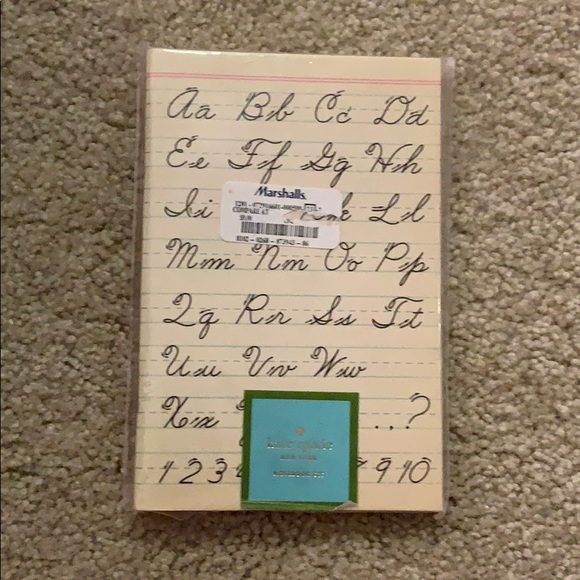 Aa Bb Cc Dd
Ee Ff Gg Hh
Marshalls
COMPARE AT
Ii Ll
Mm Nn Oo Pp
Qq Rr Ss Tt
Uu Vv Ww
Xx ...?
kate spade
NEW YORK
1 2 3 9 10